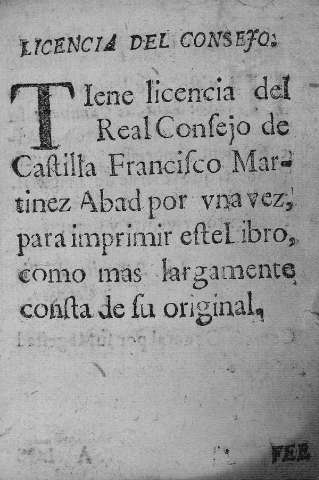 LICENCIA DEL CONSEJO.
TIene licencia del
Real Conſejo de
Caſtilla Franciſco Mar-
tinez Abad por vna vez,
para imprimir eſte Libro,
como mas largamente
conſta de ſu original.
FEE